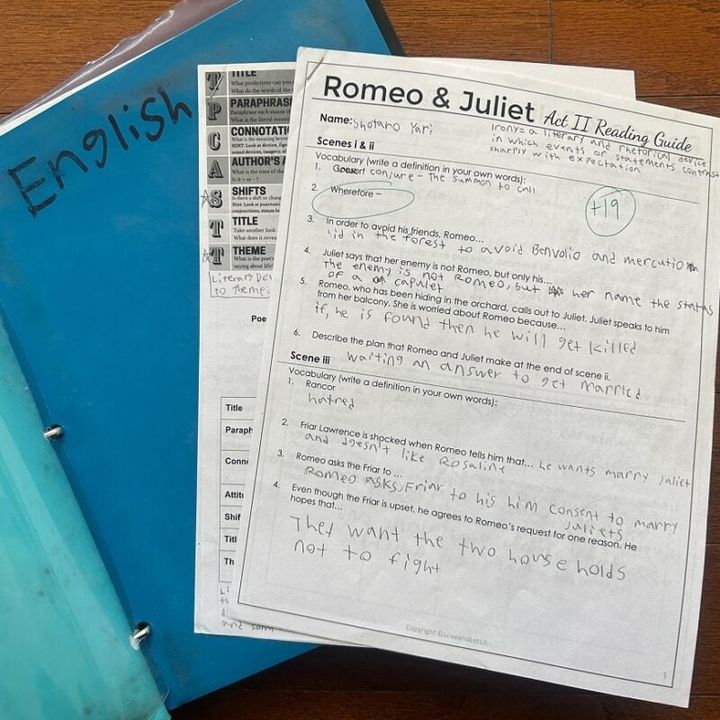 English
TITLE
What predictions can you
What do the words of the
PARAPHRAS
Paraphrase each stanza
What is the literal meaning
CONNOTATIO
What is the meaning beyon
HINT: Look at diction, figu
sound devices, imagery, al
AUTHOR'S A
What is the tone of the
Is it + or -?
SHIFTS
Is there a shift or chang
Hint: Look at punctuati
conjunctions, stanza le
TITLE
Take another look
What does it reveal
THEME
What is the poet
saying about life
T
P
C
A
S
T
T
Literary Dev
to theme:
Poe
Title
Paraph
Conn
Attit
Shif
Titl
Th
and som
Romeo & Juliet Act II Reading Guide
Name: Shotaro Yari
Irony= a literary and rhetorical device
in which events or statements contrast
sharply with expectation
Scenes i & ii
Vocabulary (write a definition in your own words):
1. conjure - The summon to call
2. Wherefore -
+19
3. In order to avoid his friends, Romeo...
hid in the forest to avoid Benvolio and mercutio
4. Juliet says that her enemy is not Romeo, but only his...
The enemy is not Romeo, but her name the status
of a capulet
5. Romeo, who has been hiding in the orchard, calls out to Juliet. Juliet speaks to him
from her balcony. She is worried about Romeo because...
if, he is found then he will get killed
6. Describe the plan that Romeo and Juliet make at the end of scene ii.
waiting an answer to get married
Scene iii
Vocabulary (write a definition in your own words):
1. Rancor
hatred
2. Friar Lawrence is shocked when Romeo tells him that... he wants marry Juliet
and doesn't like Rosaline
3. Romeo asks the Friar to ...
Romeo asks Friar to his him consent to marry
Juliets
4. Even though the Friar is upset, he agrees to Romeo's request for one reason. He
hopes that...
They want the two households
not to fight
1